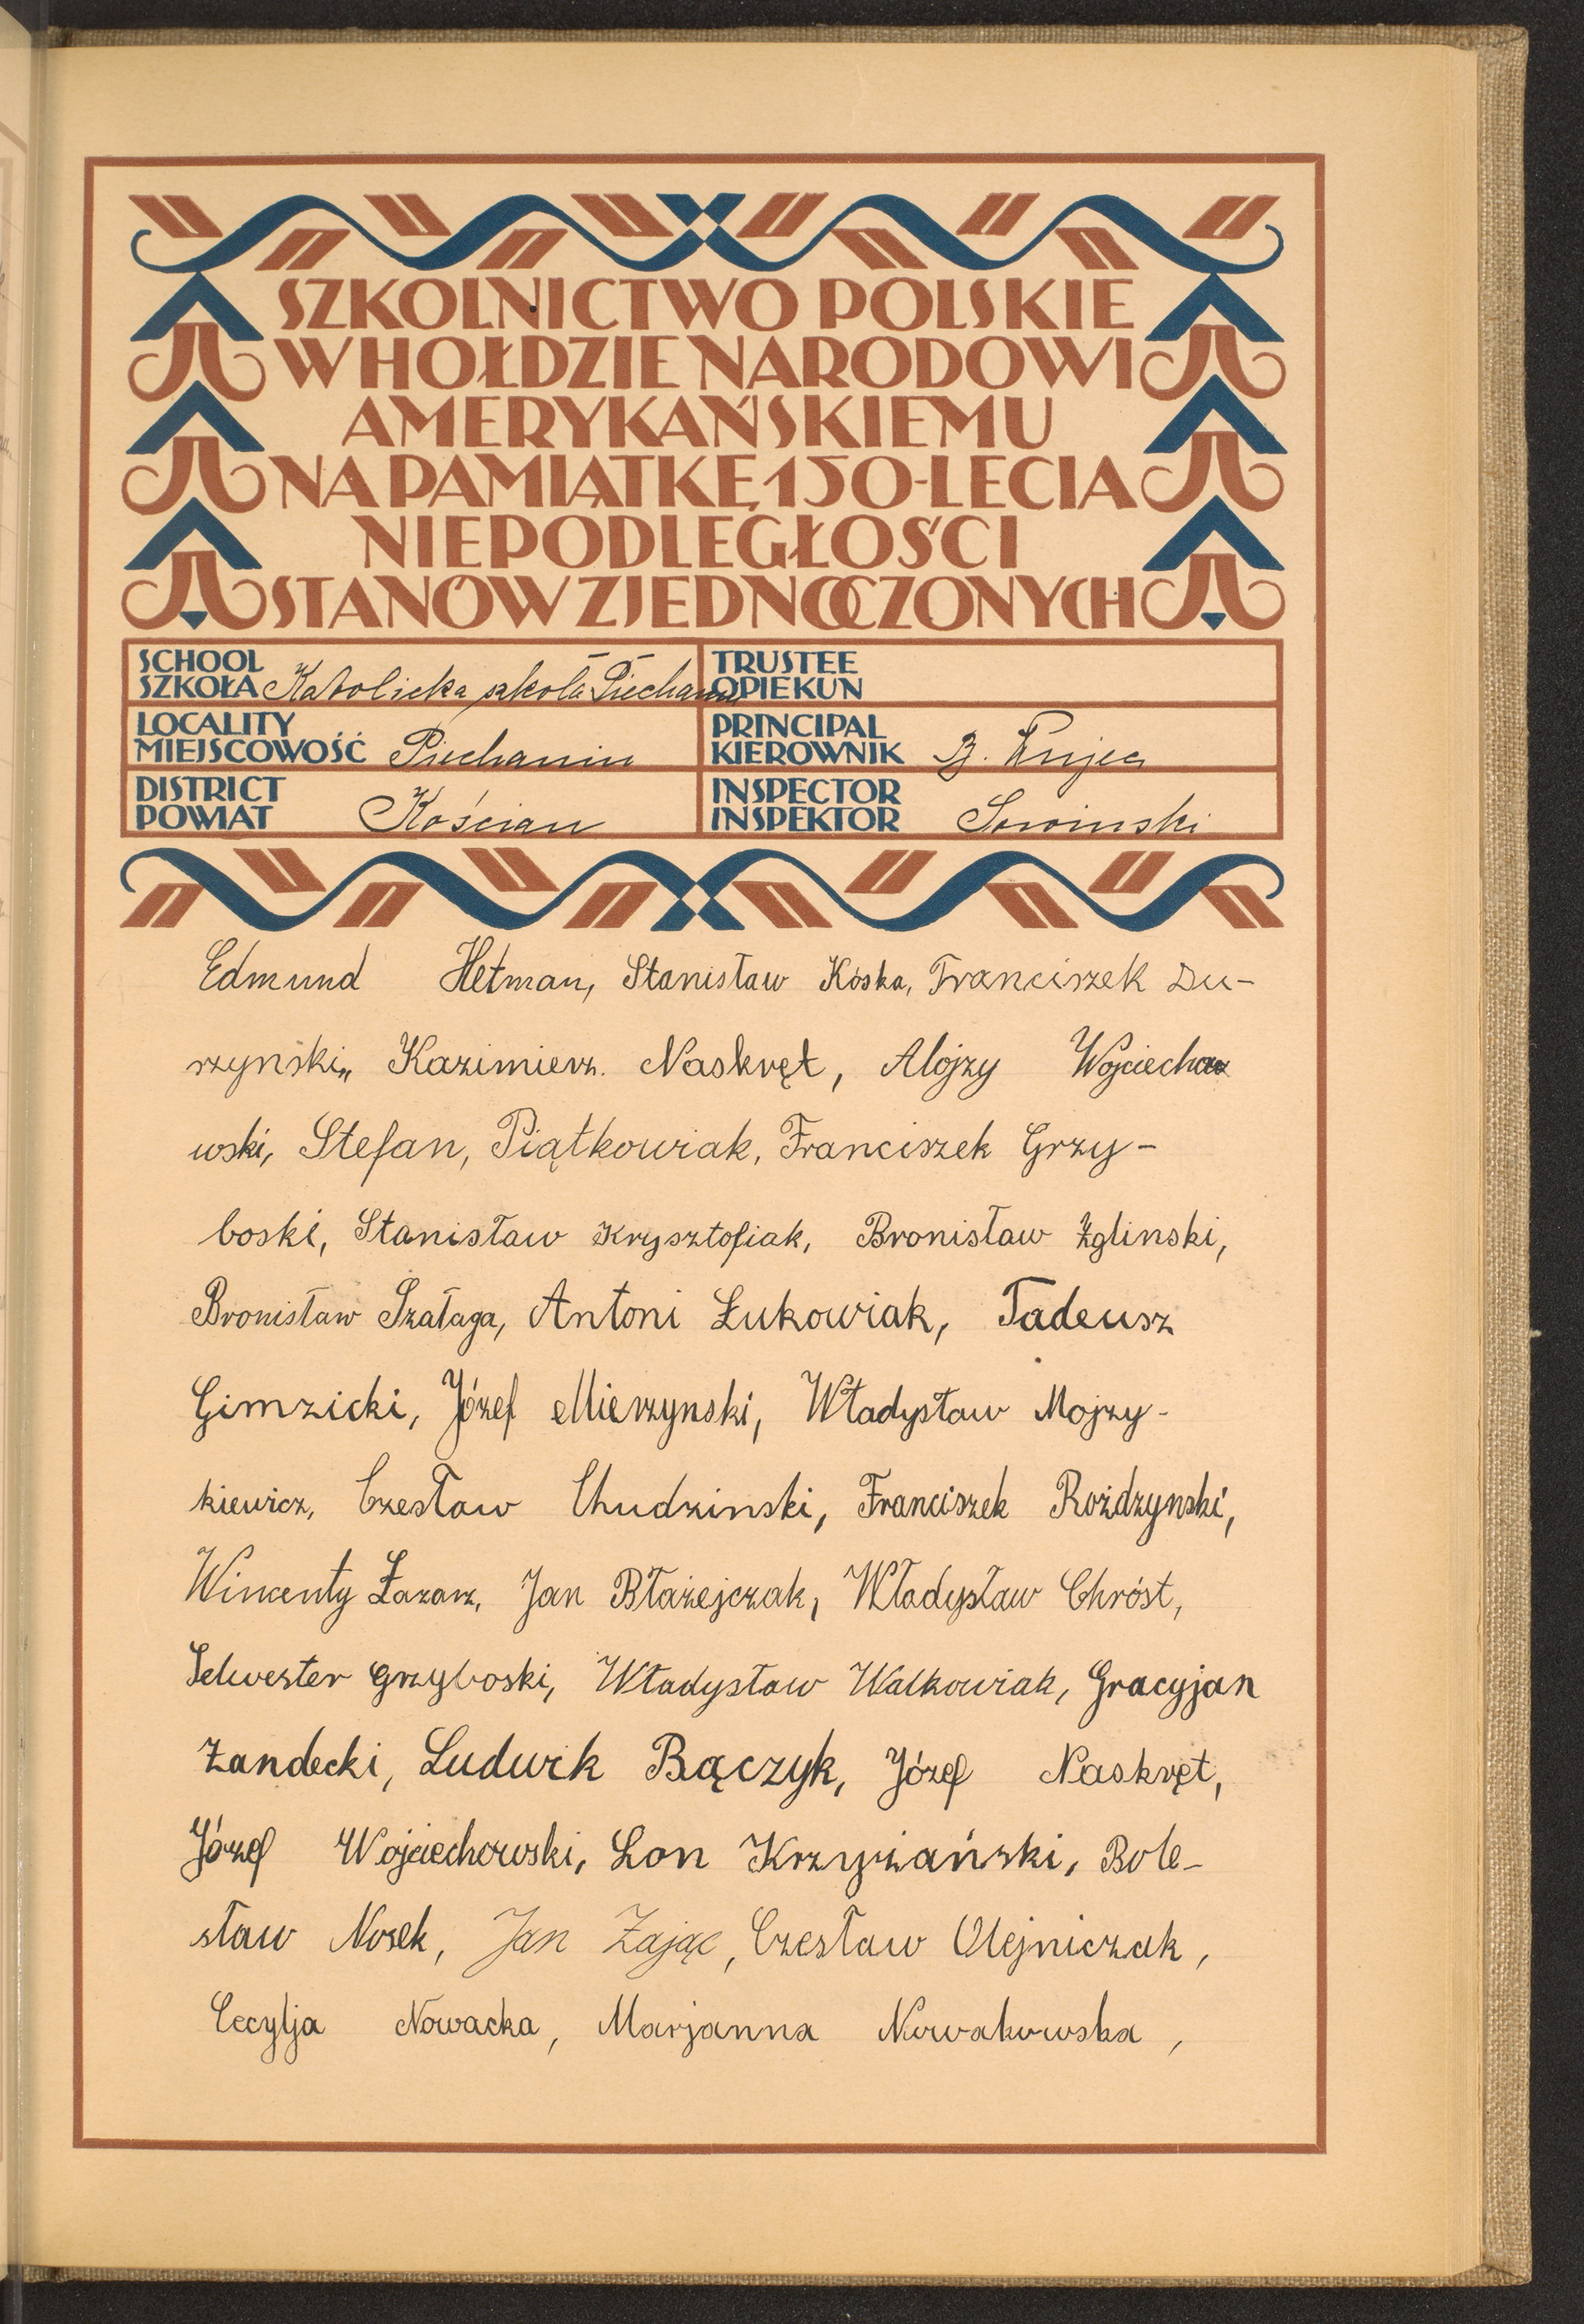 SZKOLNICTWO POLSKIE
W HOŁDZIE NARODOWI
AMERYKAŃSKIEMU
NA PAMIĄTKĘ 150-LECIA
NIEPODLEGŁOŚCI
STANÓW ZJEDNOCZONYCH
SCHOOL
SZKOŁA Katolicka szkoła Piechanin
TRUSTEE
OPIEKUN
LOCALITY
MIEJSCOWOŚĆ Piechanin
PRINCIPAL
KIEROWNIK
DISTRICT
POWIAT Kościan
INSPECTOR
INSPEKTOR Sowinski
Edmund Hetman, Stanisław Kóska, Franciszek Du-
rzynski,, Kazimierz. Naskręt, Alojzy Wojciechow
wski, Stefan, Piątkowiak, Franciszek Grzy-
boski, Stanisław Krysztofiak, Bronisław Żglinski,
Bronisław Szałaga, Antoni Łukowiak, Tadeusz
Gimzicki, Józef Mierzynski, Władysław Mojzy-
kiewicz, Czesław Chudzinski, Franciszek Rożdzynski,
Wincenty Łazarz, Jan Błażejczak, Władysław Chróst,
Selwester Grzyboski, Władysław Walkowiak, Gracyjan
Żandecki, Ludwik Bączyk, Józef Naskręt,
Józef Wojciechowski, Lon Krzyżański, Bole-
sław Nosek, Jan Zając, Czesław Olejniczak,
Cecylja Nowacka, Marjanna Nowakowska,